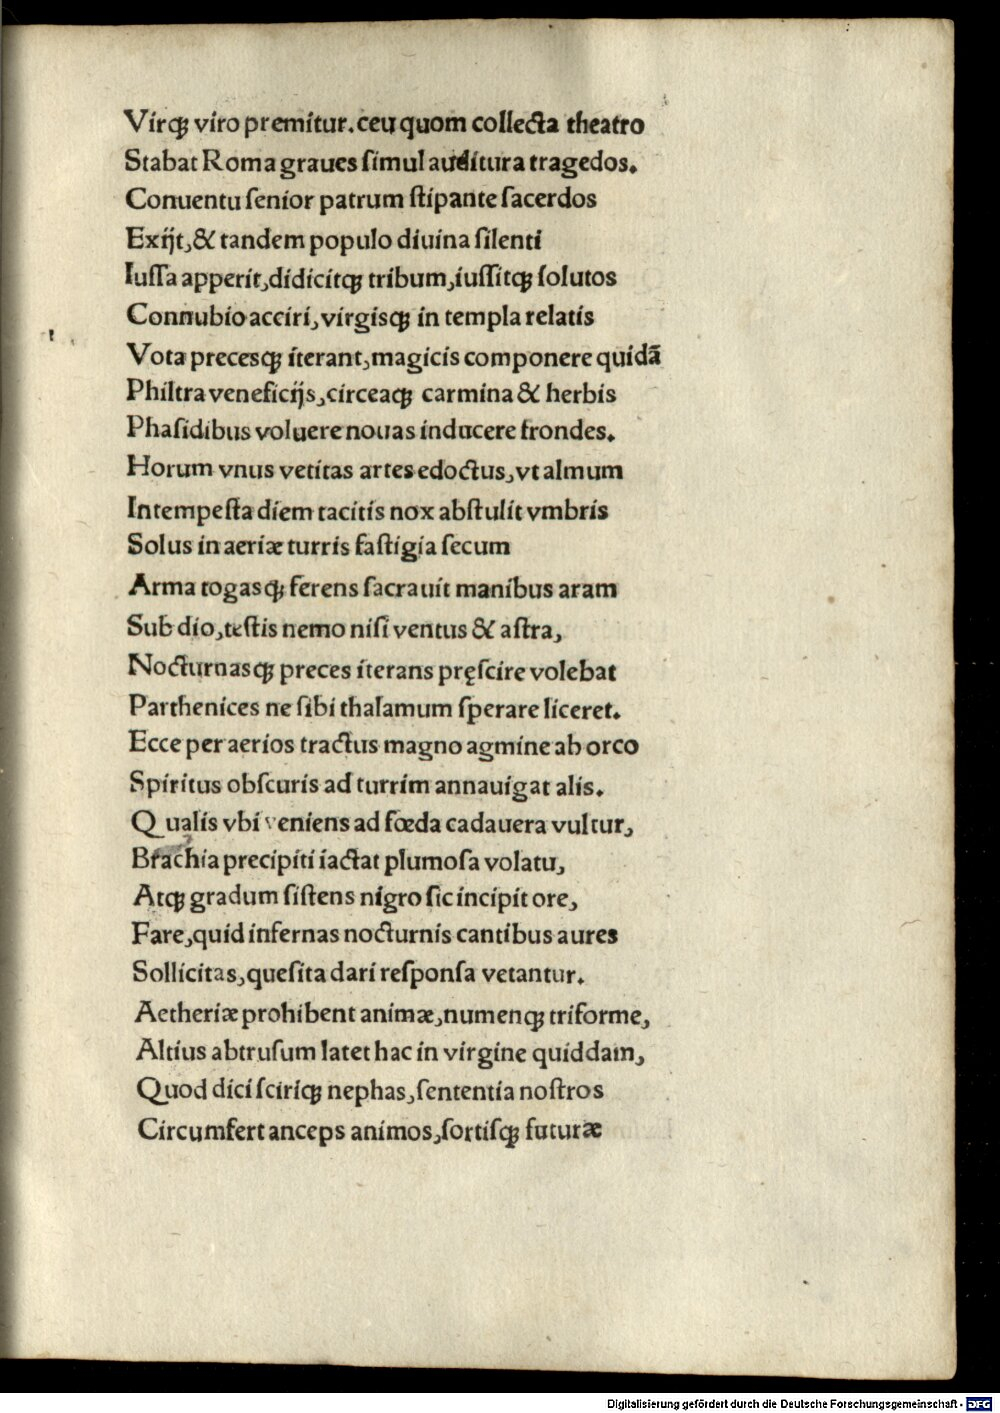 Virqꝫ viro premitur. ceu quom collecta theatro
Stabat Roma graues ſimul auditura tragedos.
Conuentu ſenior patrum ſtipante ſacerdos
Exijt, & tandem populo diuina ſilenti
Iuſſa apperit, didicitqꝫ tribum, iuſſitqꝫ ſolutos
Connubio acciri, virgisqꝫ in templa relatis
Vota precesqꝫ iterant, magicis componere quidã
Philtra veneficijs, circeaqꝫ carmina & herbis
Phaſidibus voluere nouas inducere frondes.
Horum vnus vetitas artes edoctus, vt almum
Intempeſta diem tacitis nox abſtulit vmbris
Solus in aeriæ turris faſtigia ſecum
Arma togasqꝫ ferens ſacrauit manibus aram
Sub dio, teſtis nemo niſi ventus & aſtra,
Nocturnasqꝫ preces iterans pręſcire volebat
Parthenices ne ſibi thalamum ſperare liceret.
Ecce per aerios tractus magno agmine ab orco
Spiritus obſcuris ad turrim annauigat alis.
Qualis vbi veniens ad fœda cadauera vultur,
Brachia precipiti iactat plumoſa volatu,
Atqꝫ gradum ſiſtens nigro ſic incipit ore,
Fare, quid infernas nocturnis cantibus aures
Sollicitas, queſita dari reſponſa vetantur.
Aetheriæ prohibent animæ, numenqꝫ triforme,
Altius abtruſum latet hac in virgine quiddam,
Quod dici ſciriqꝫ nephas, ſententia noſtros
Circumfert anceps animos, ſortiſqꝫ futuræ
Digitalisierung gefördert durch die Deutsche Forschungsgemeinschaft - DFG